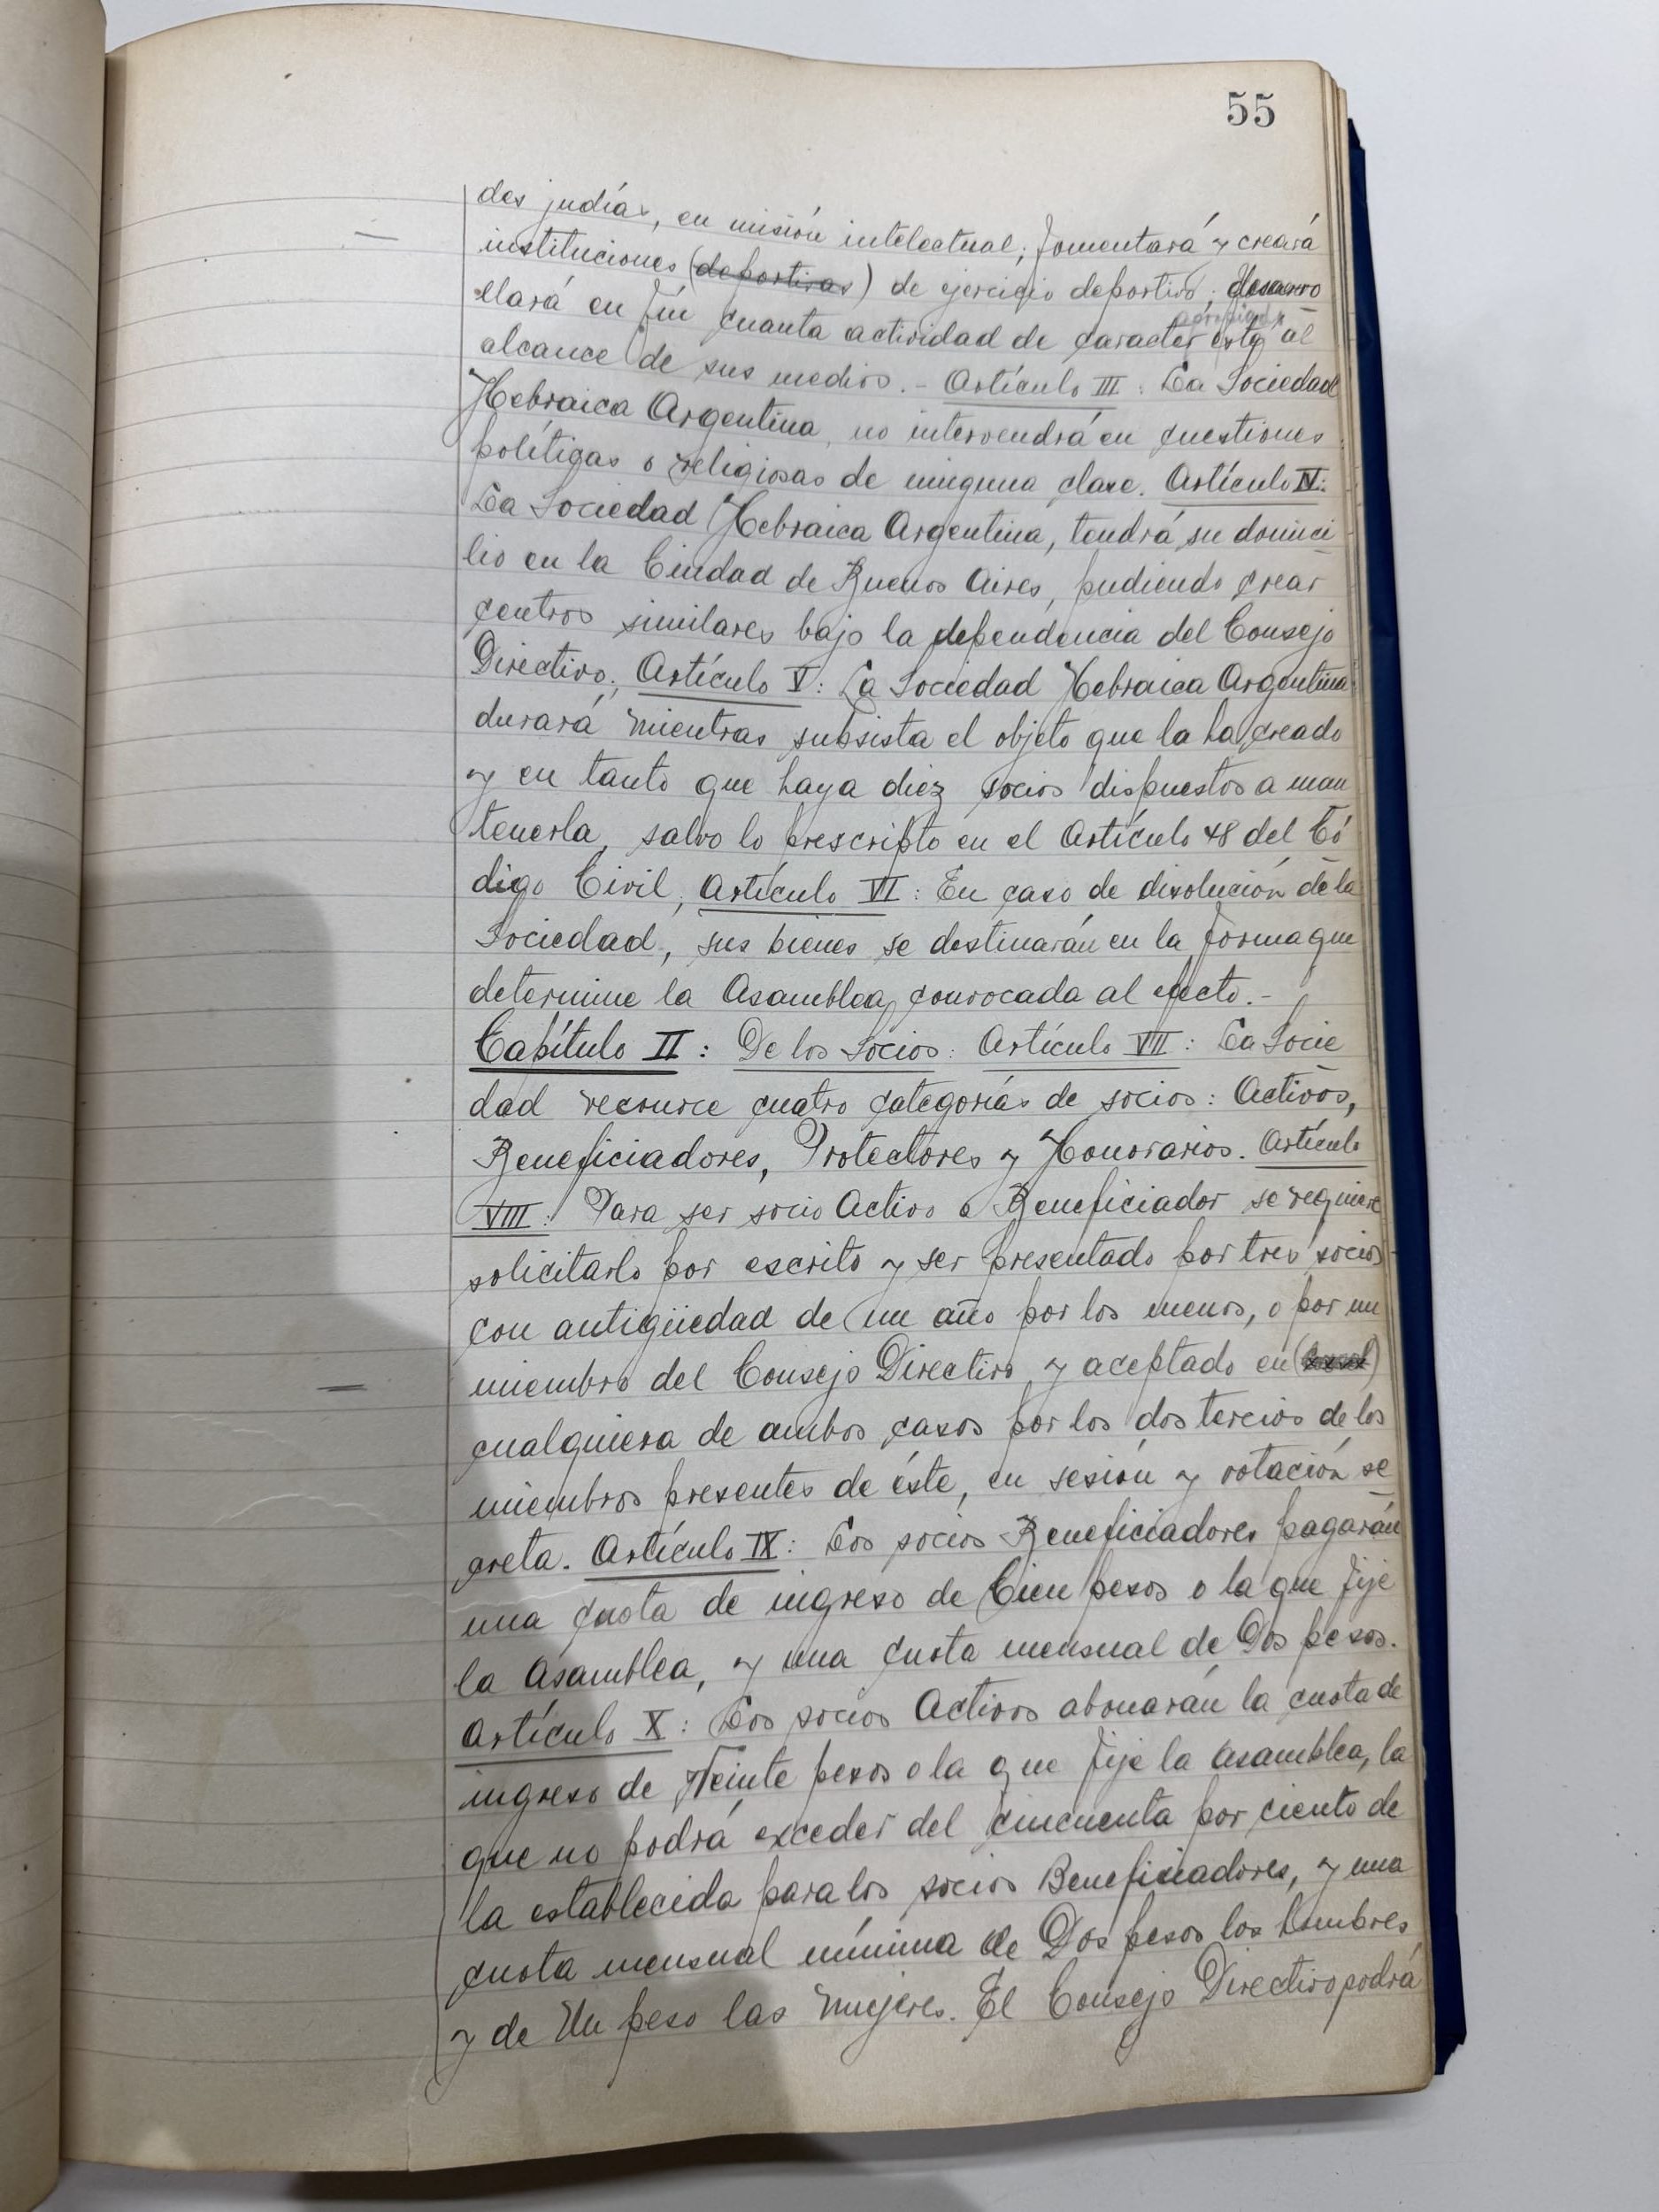 55
des judías, en misión intelectual; fomentará y creará
instituciones (deportivas) de ejercicio deportivo; desarro
llará en fín cuanta actividad de caracter esté al
alcance de sus medios. - Artículo III: La Sociedad
Hebraica Argentina, no intervendrá en cuestiones
políticas o religiosas de ninguna clase. Artículo IV:
La Sociedad Hebraica Argentina, tendrá su domici
lio en la Ciudad de Buenos Aires, pudiendo crear
centros similares bajo la dependencia del Consejo
Directivo; Artículo V: La Sociedad Hebraica Argentina
durará mientras subsista el objeto que la ha creado
y en tanto que haya diez socios dispuestos a man
tenerla, salvo lo prescripto en el Artículo 48 del Có
digo Civil; Artículo VI: En caso de disolución de la
Sociedad, sus bienes se destinarán en la forma que
determine la Asamblea, convocada al efecto.-
Capítulo II: De los Socios: Artículo VII: La Socie
dad reconoce cuatro categorías de socios: Activos,
Beneficiadores, Protectores y Honorarios. Artículo
VIII: Para ser socio Activo o Beneficiador se requiere
solicitarlo por escrito y ser presentado por tres socios
con antigüedad de un año por los menos, o por un
miembro del Consejo Directivo y aceptado en
cualquiera de ambos casos por los dos tercios de los
miembros presentes de éste, en sesión y votación se
creta. Artículo IX: Los socios Beneficiadores pagarán
una cuota de ingreso de Cien pesos o la que fije
la Asamblea, y una cuota mensual de Dos pesos.
Artículo X: Los socios Activos abonarán la cuota de
ingreso de Veinte pesos o la que fije la Asamblea, la
que no podrá exceder del cincuenta por ciento de
la establecida para los socios Beneficiadores, y una
cuota mensual mínima de Dos pesos los hombres
y de Un peso las mujeres. El Consejo Directivo podrá